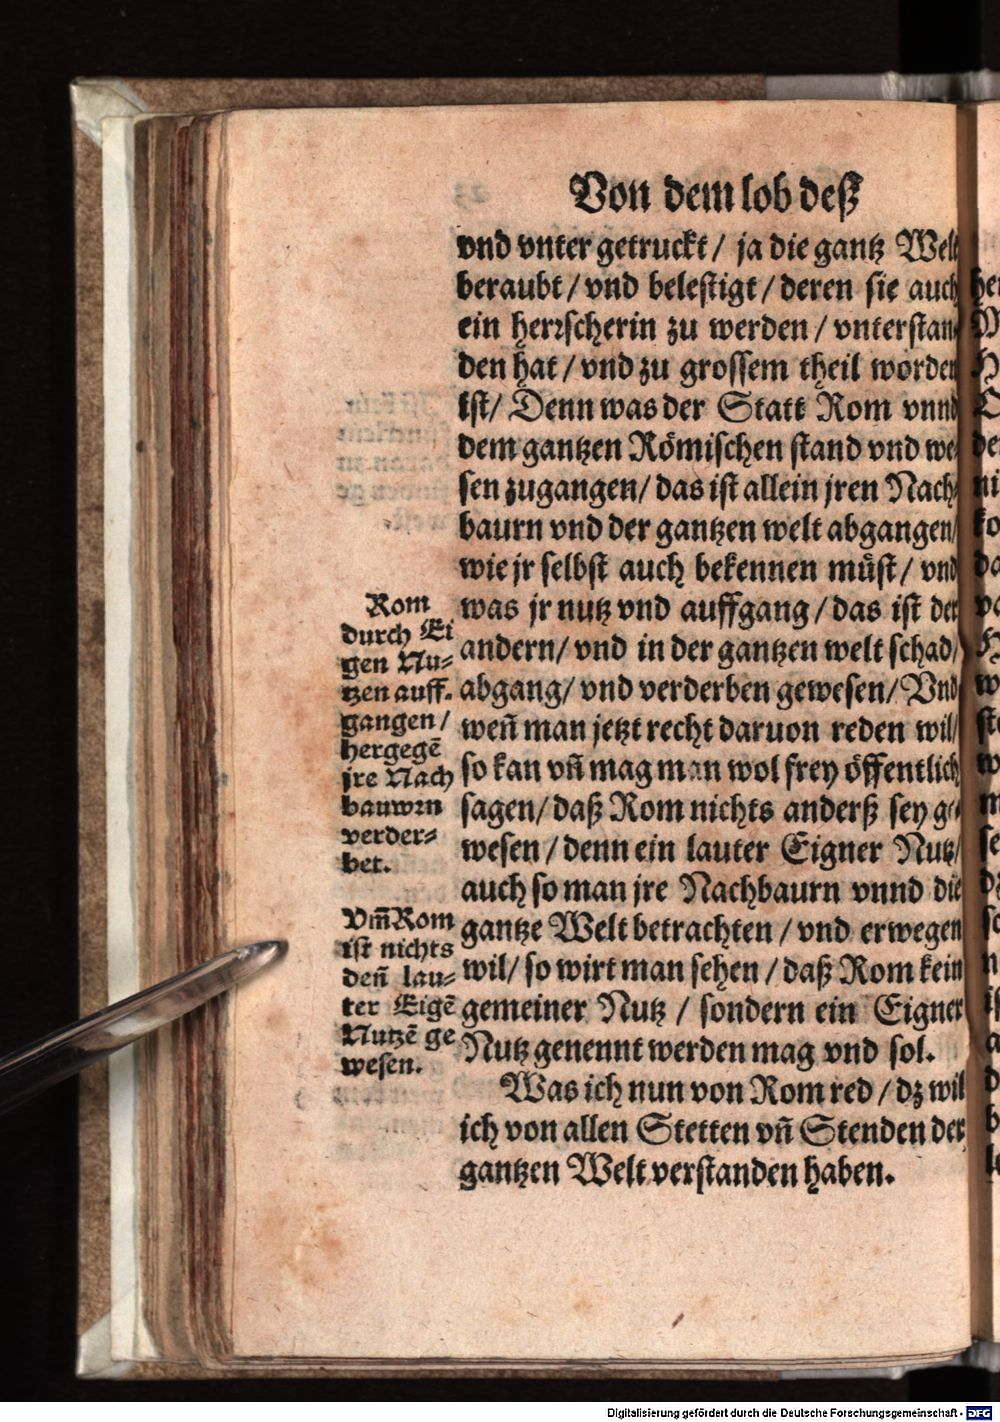 Von dem lob deß
vnd vnter getruckt / ja die gantz Welt
beraubt / vnd belestigt / deren sie auch
ein herrscherin zu werden / vnterstan-
den hat / vnd zu grossem theil worden
ist / Denn was der Statt Rom vnnd
dem gantzen Römischen stand vnd we-
sen zugangen / das ist allein jren Nach-
baurn vnd der gantzen welt abgangen /
wie jr selbst auch bekennen müst / vnd
was jr nutz vnd auffgang / das ist der
andern / vnd in der gantzen welt schad /
abgang / vnd verderben gewesen / Vnd
weñ man jetzt recht daruon reden wil /
so kan vñ mag man wol frey öffentlich
sagen / daß Rom nichts anderß sey ge-
wesen / denn ein lauter Eigner Nutz /
auch so man jre Nachbaurn vnnd die
gantze Welt betrachten / vnd erwegen
wil / so wirt man sehen / daß Rom kein
gemeiner Nutz / sondern ein Eigner
Nutz genennt werden mag vnd sol.
Was ich nun von Rom red / dz wil
ich von allen Stetten vñ Stenden der
gantzen Welt verstanden haben.
Rom
durch Ei
gen Nu-
tzen auff-
gangen /
hergegē
jre Nach
bauwrn
verder-
bet.
Vm̃ Rom
ist nichts
deñ lau-
ter Eigē
Nutzē ge
wesen.
Digitalisierung gefördert durch die Deutsche Forschungsgemeinschaft - DFG